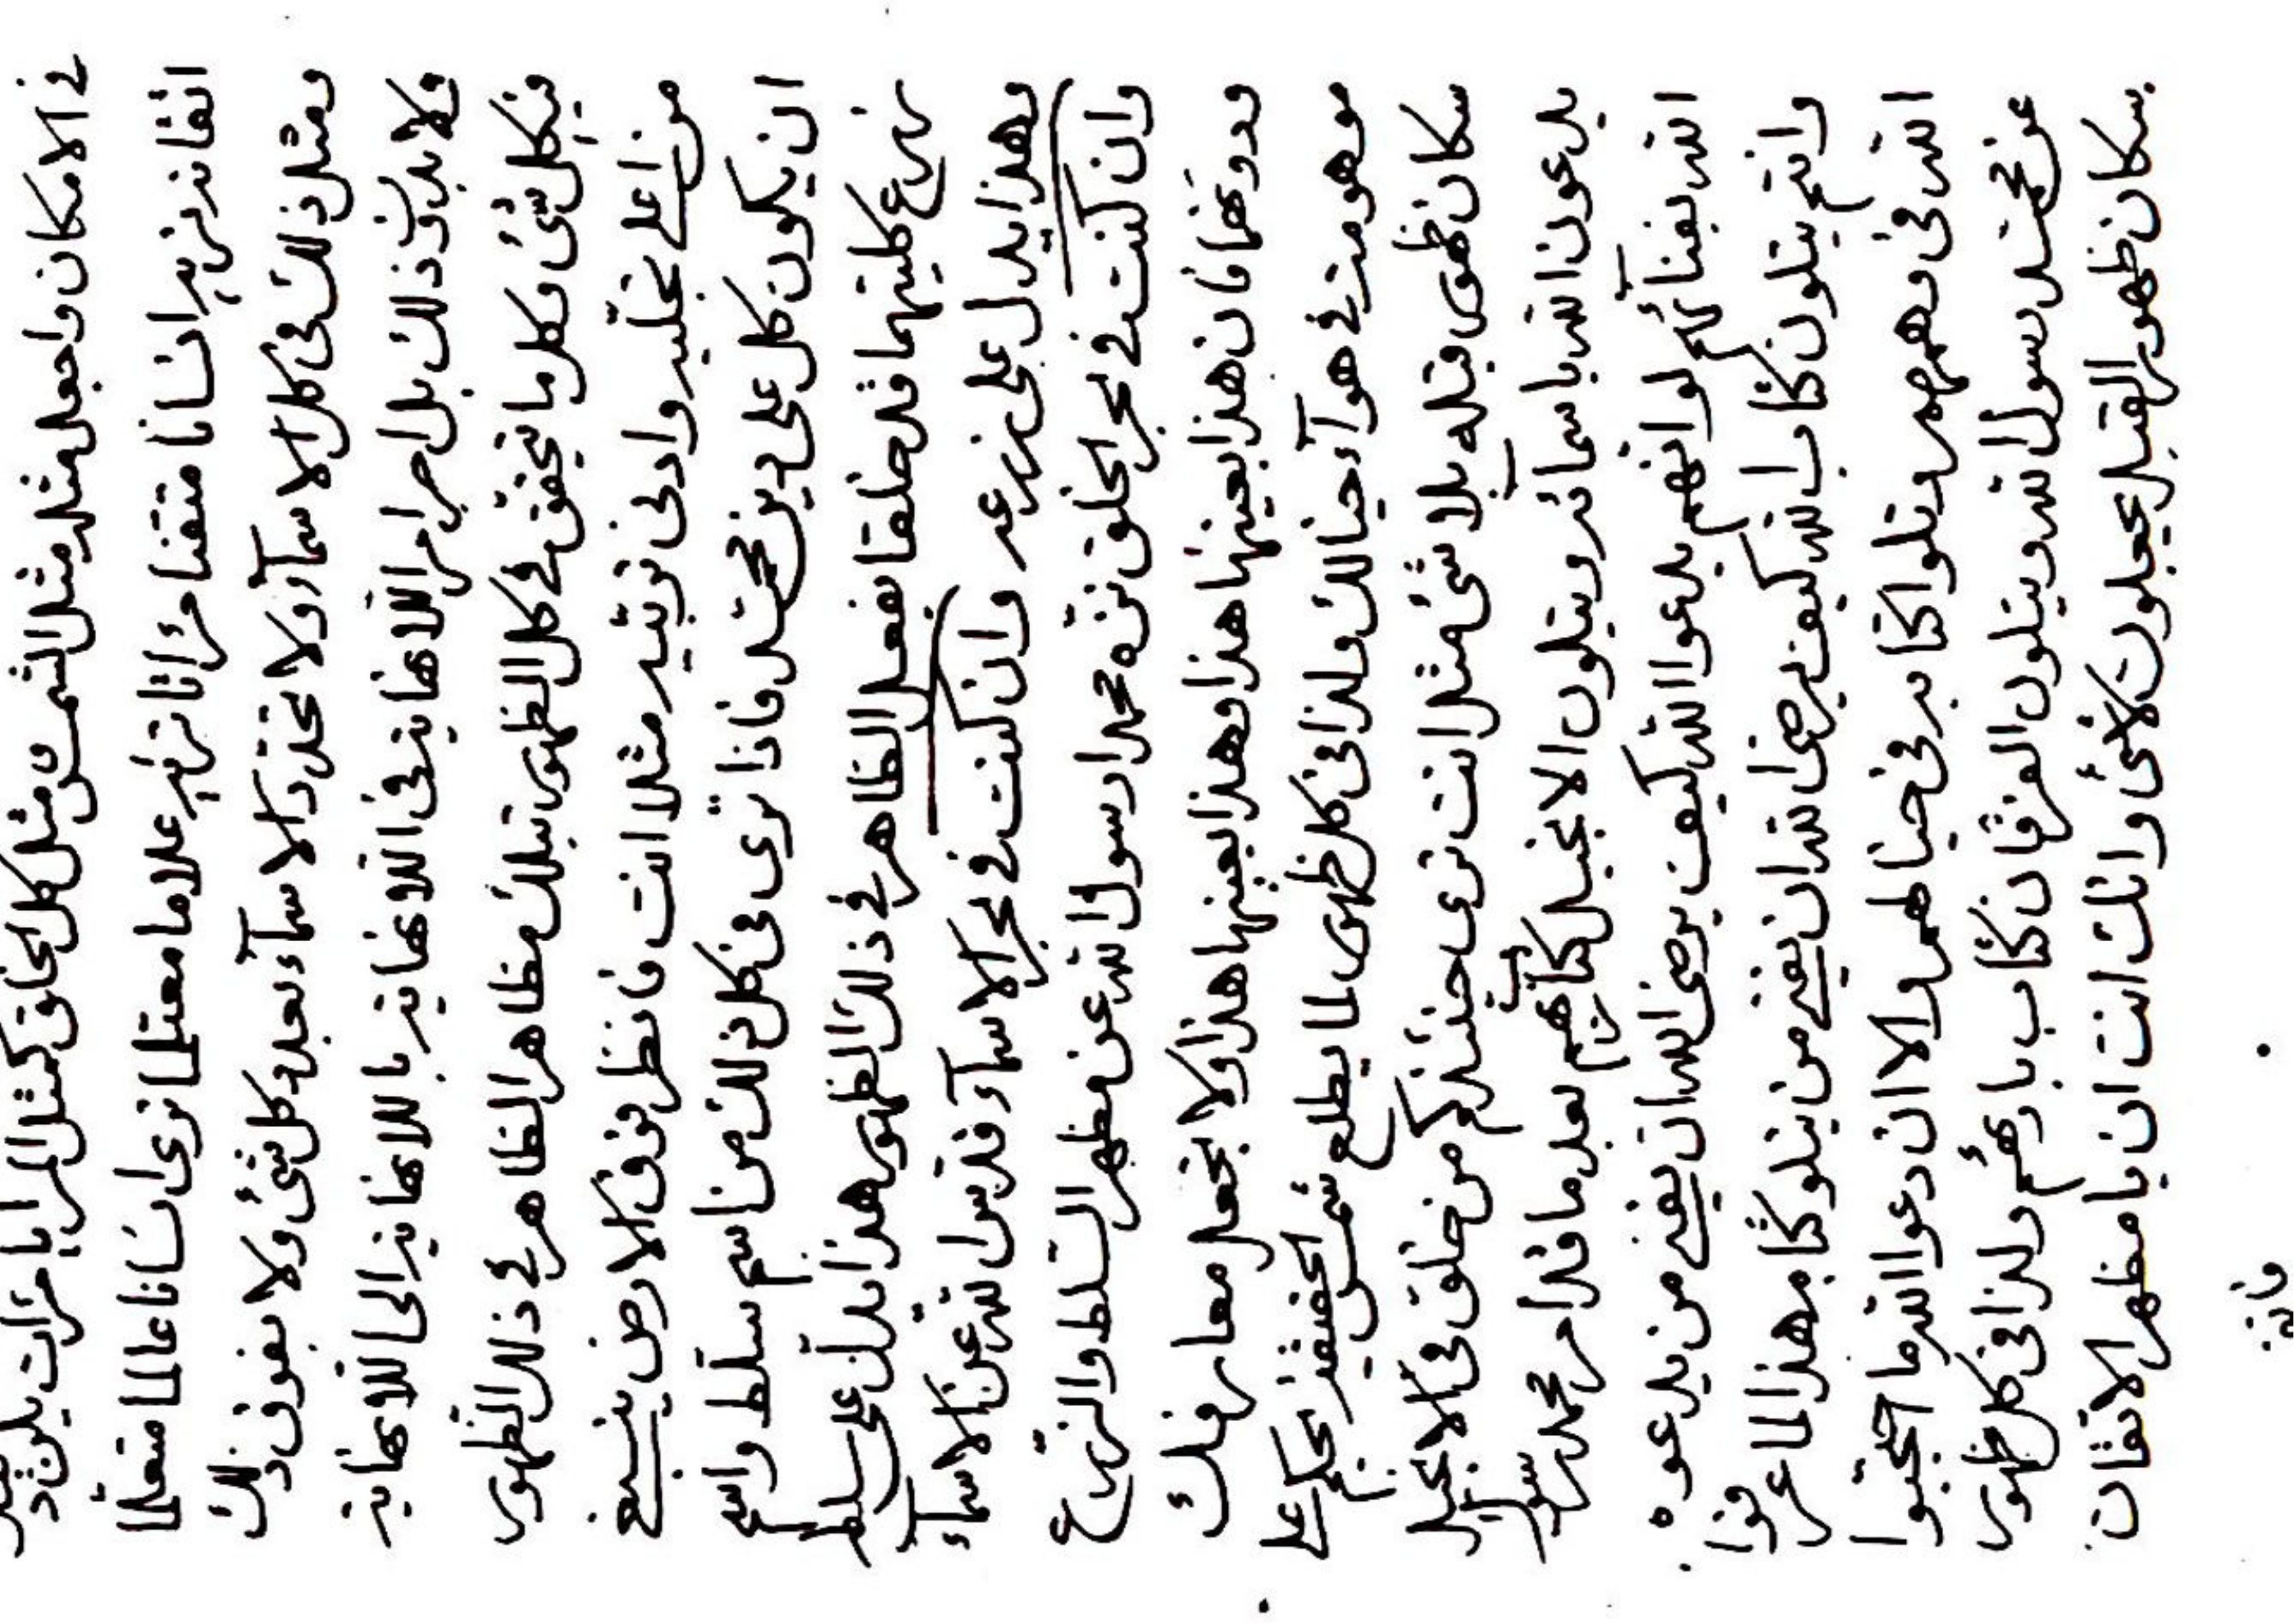 في الامكان واجعل مثله مثل الشمس ومثل كل الخلق كمثل المرايا مرات
اتقانه انسانا متقنا علاما معتلما نرى انسانا عالما متعلما
ومثل ذلك في كل الاسمآء ولا تحدد الاسمآء بعدد كل شئ ولا بفوق ذلك
ولا بدون ذلك بل اجر امر اللانهاية في اللانهاية باللانهاية الى اللانهاية
في كل شئ وكل ما تحقق في كل الظهور تبلك مظاهر الظاهر في ذلك الظهور
من اعلى تجليه وادنى مثلا انت فانظر فوق الارض ينبغي
ان يكون كل على دين محمد فاذا ترى في كل ذلك من اسم سلط واسم
نزع كليتهما قد خلقا بفعل الظاهر في ذلك الظهور هذا تدل على سلطه
وهذا يدل على نزعه وان كنت في بحر الاسمآء قدس الله عن الاسمآء
وان كنت في بحر الخلق نزه محمدا رسول الله عن مظهر السلط والنزع
ودونهما فان هذا بعينها هذا وهذا بعينها هذا ولا تجعل معارفك
موهومة في هوآء خيالك ولذا في كل ظهور لما يطلع شمس الحقيقة يحكم على
سكان ظهور قبله بلا شئ مثل انت ترى حينئذ كم من خلق في الانجيل
يدعون الله باسمائه ويتلون الانجيل كتابهم بعد ما قد امر محمد رسول
الله بفنآئهم لو انهم يدعوا الله كيف يرضى الله ان يفنى من يدعوه
وانتم يتلون كتاب الله كيف يرضى الله ان يفنى من يتلو كتابه هذا لما عرفوا
الله في وهمهم وتلوا كتابه في خيالهم والا ان دعوا الله ما احتجبوا
عن محمد رسول الله ويتلون الفرقان كتاب بارئهم ولذا في كل ظهور
سكان ظهور القبل يجعلون لاشئ وانك انت ان يا مظهر الاتقان
فانه